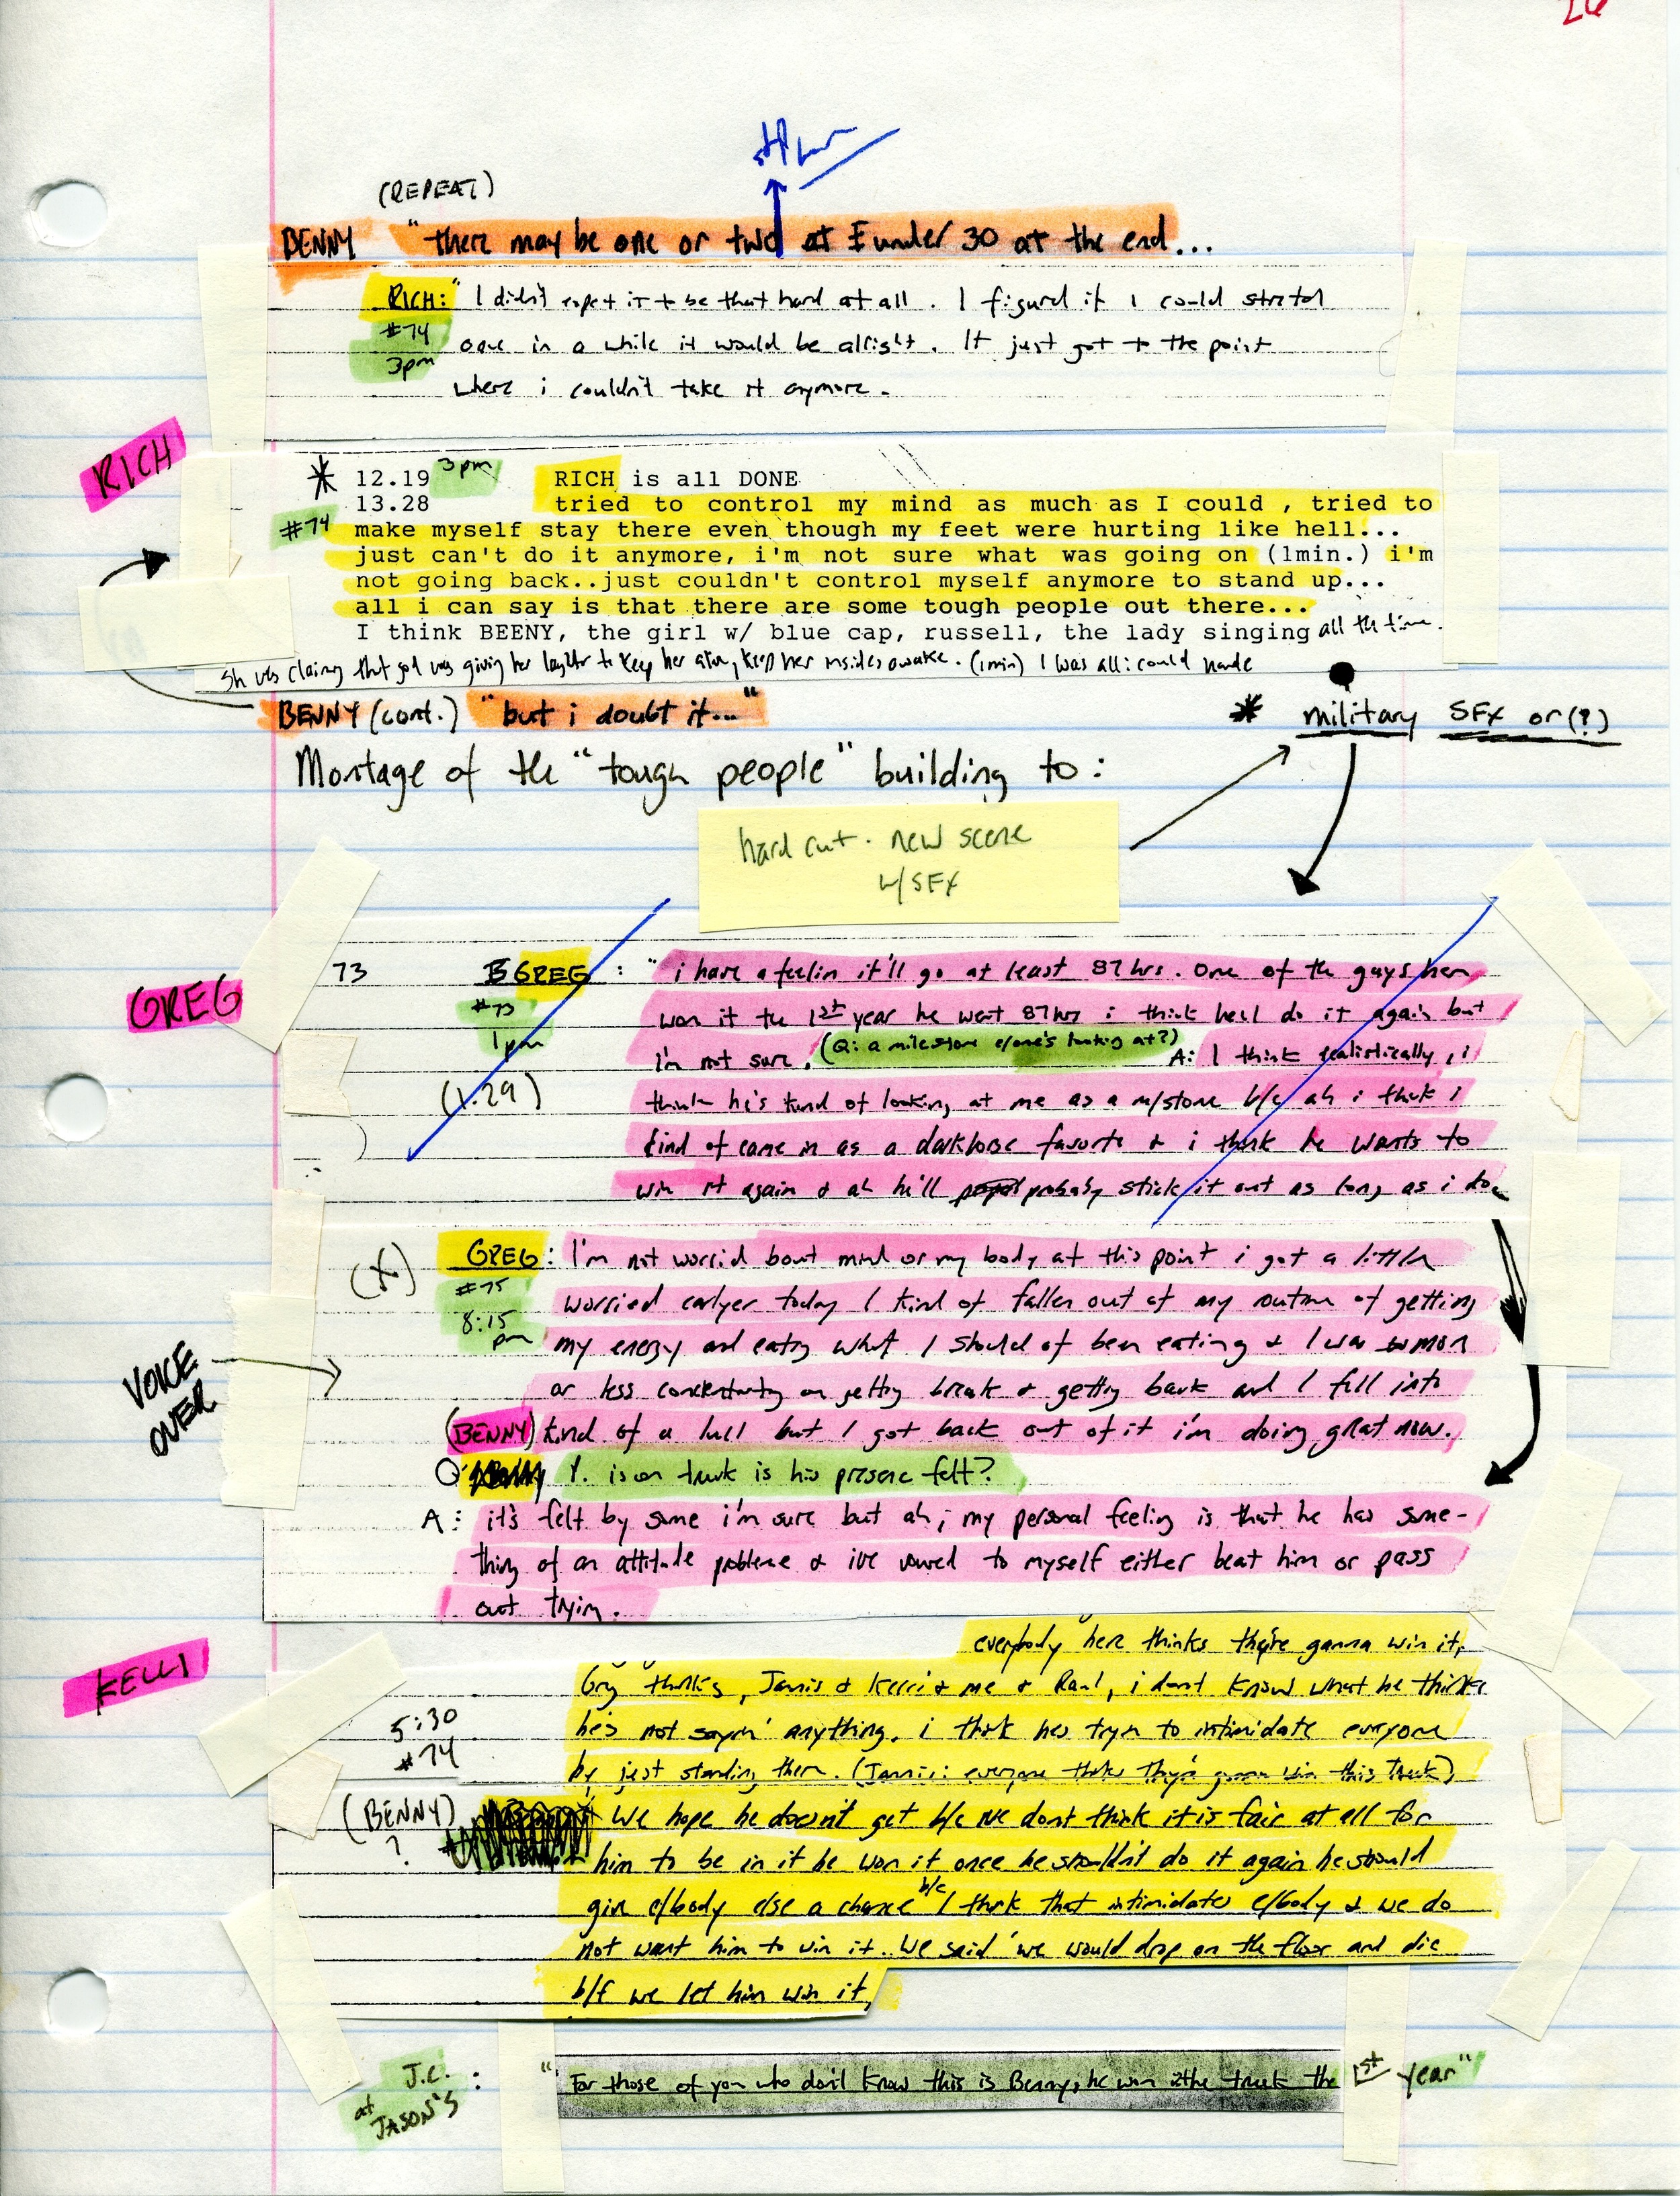 26
(REPEAT)
BENNY "there may be one or two at I under 30 at the end...
RICH: "I didn't expect it to be that hard at all. I figured if I could stretch
#74
once in a while it would be alright. It just got to the point
3pm
where i couldn't take it anymore.
RICH
* 12.19 3pm RICH is all DONE
13.28 tried to control my mind as much as I could , tried to
#74 make myself stay there even though my feet were hurting like hell...
just can't do it anymore, i'm not sure what was going on (1min.) i'm
not going back..just couldn't control myself anymore to stand up...
all i can say is that there are some tough people out there...
I think BEENY, the girl w/ blue cap, russell, the lady singing all the time.
Sh was claiming that god was giving her laughter to keep her alive, keep her insides awake. (1min) I was all i could
BENNY (cont.) "but i doubt it..."
* military SFX or (?)
Montage of the "tough people" building to:
hard cut. new scene
w/SFX
GREG
73 GREG : "i have a feelin it'll go at least 87 hrs. One of the guys here
#73
won it the 1st year he went 87 hrs i think he'll do it again but
1pm
i'm not sure. (Q: a milestone e/one's looking at?) A: I think realistically, i
(1.29)
think he's kind of looking at me as a m/stone b/c ah i think i
kind of came in as a darkhorse favorite & i think he wants to
win it again & ah he'll probably stick it out as long as i do.
(X) GREG: I'm not worried bout mind or my body at this point i got a little
#75
worried earlyer today I kind of fallen out of my routine of getting
8:15 pm
my energy and eating what I should of been eating & I was mor
or less concentrating on getting break & getting back and I fell into
VOICE OVER
(BENNY) kind of a lull but I got back out of it i'm doing great now.
Q: Y. is on truck is his presence felt?
A: it's felt by some i'm sure but ah, my personal feeling is that he has some-
thing of an attitude probleme & ive vowed to myself either beat him or pass
out tryin.
KELLI
everybody here thinks they're ganna win it,
Grg thinks, Janis & Kerri & me & Raul, i dont know what he thinks
5:30
he's not sayin' anything. i think hes tryn to intimidate everyone
#74
by just standing there. (Jannis: everyone thinks they're gonna win this truck)
(BENNY) ?
We hope he doesn't get b/c we dont think it is fair at all for
him to be in it he won it once he shouldn't do it again he should
give e/body else a chance b/c I think that intimidates e/body & we do
not want him to win it. We said we would drop on the floor and die
b/f we let him win it,
J.C. at JASON'S : "For those of you who don't know this is Benny, he won the truck the 1st year"